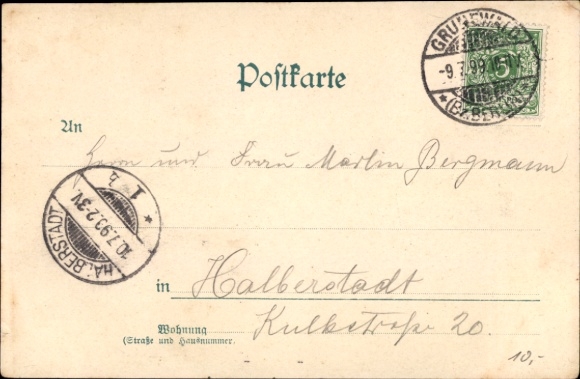 Postkarte
GRUNEWALD
-9.7.99.
* (BZ. BERLIN) *
5
An
Herrn und Frau Martin Bergmann
HALBERSTADT
10.7.99.2-3V.
* 1 b
in Halberstadt
Wohnung Kulkstraße 20.
(Straße und Hausnummer.
10,-